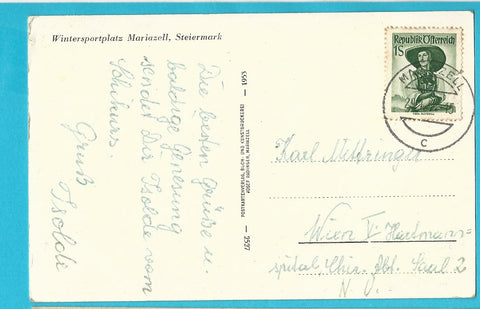 Wintersportplatz Mariazell, Steiermark
Die besten Grüße u.
baldige Genesung
sendet Dir Isolde vom
Schikurs.
Gruß
Isolde
POSTKARTENVERLAG, BUCH- UND KUNSTDRUCKEREI
JOSEF MARIAZELL
2527 — 1953
Republik Österreich
1S
MARIAZELL
c
Karl Mettringer
Wien V Hartmann=
spital, Chir. Abt. Saal 2